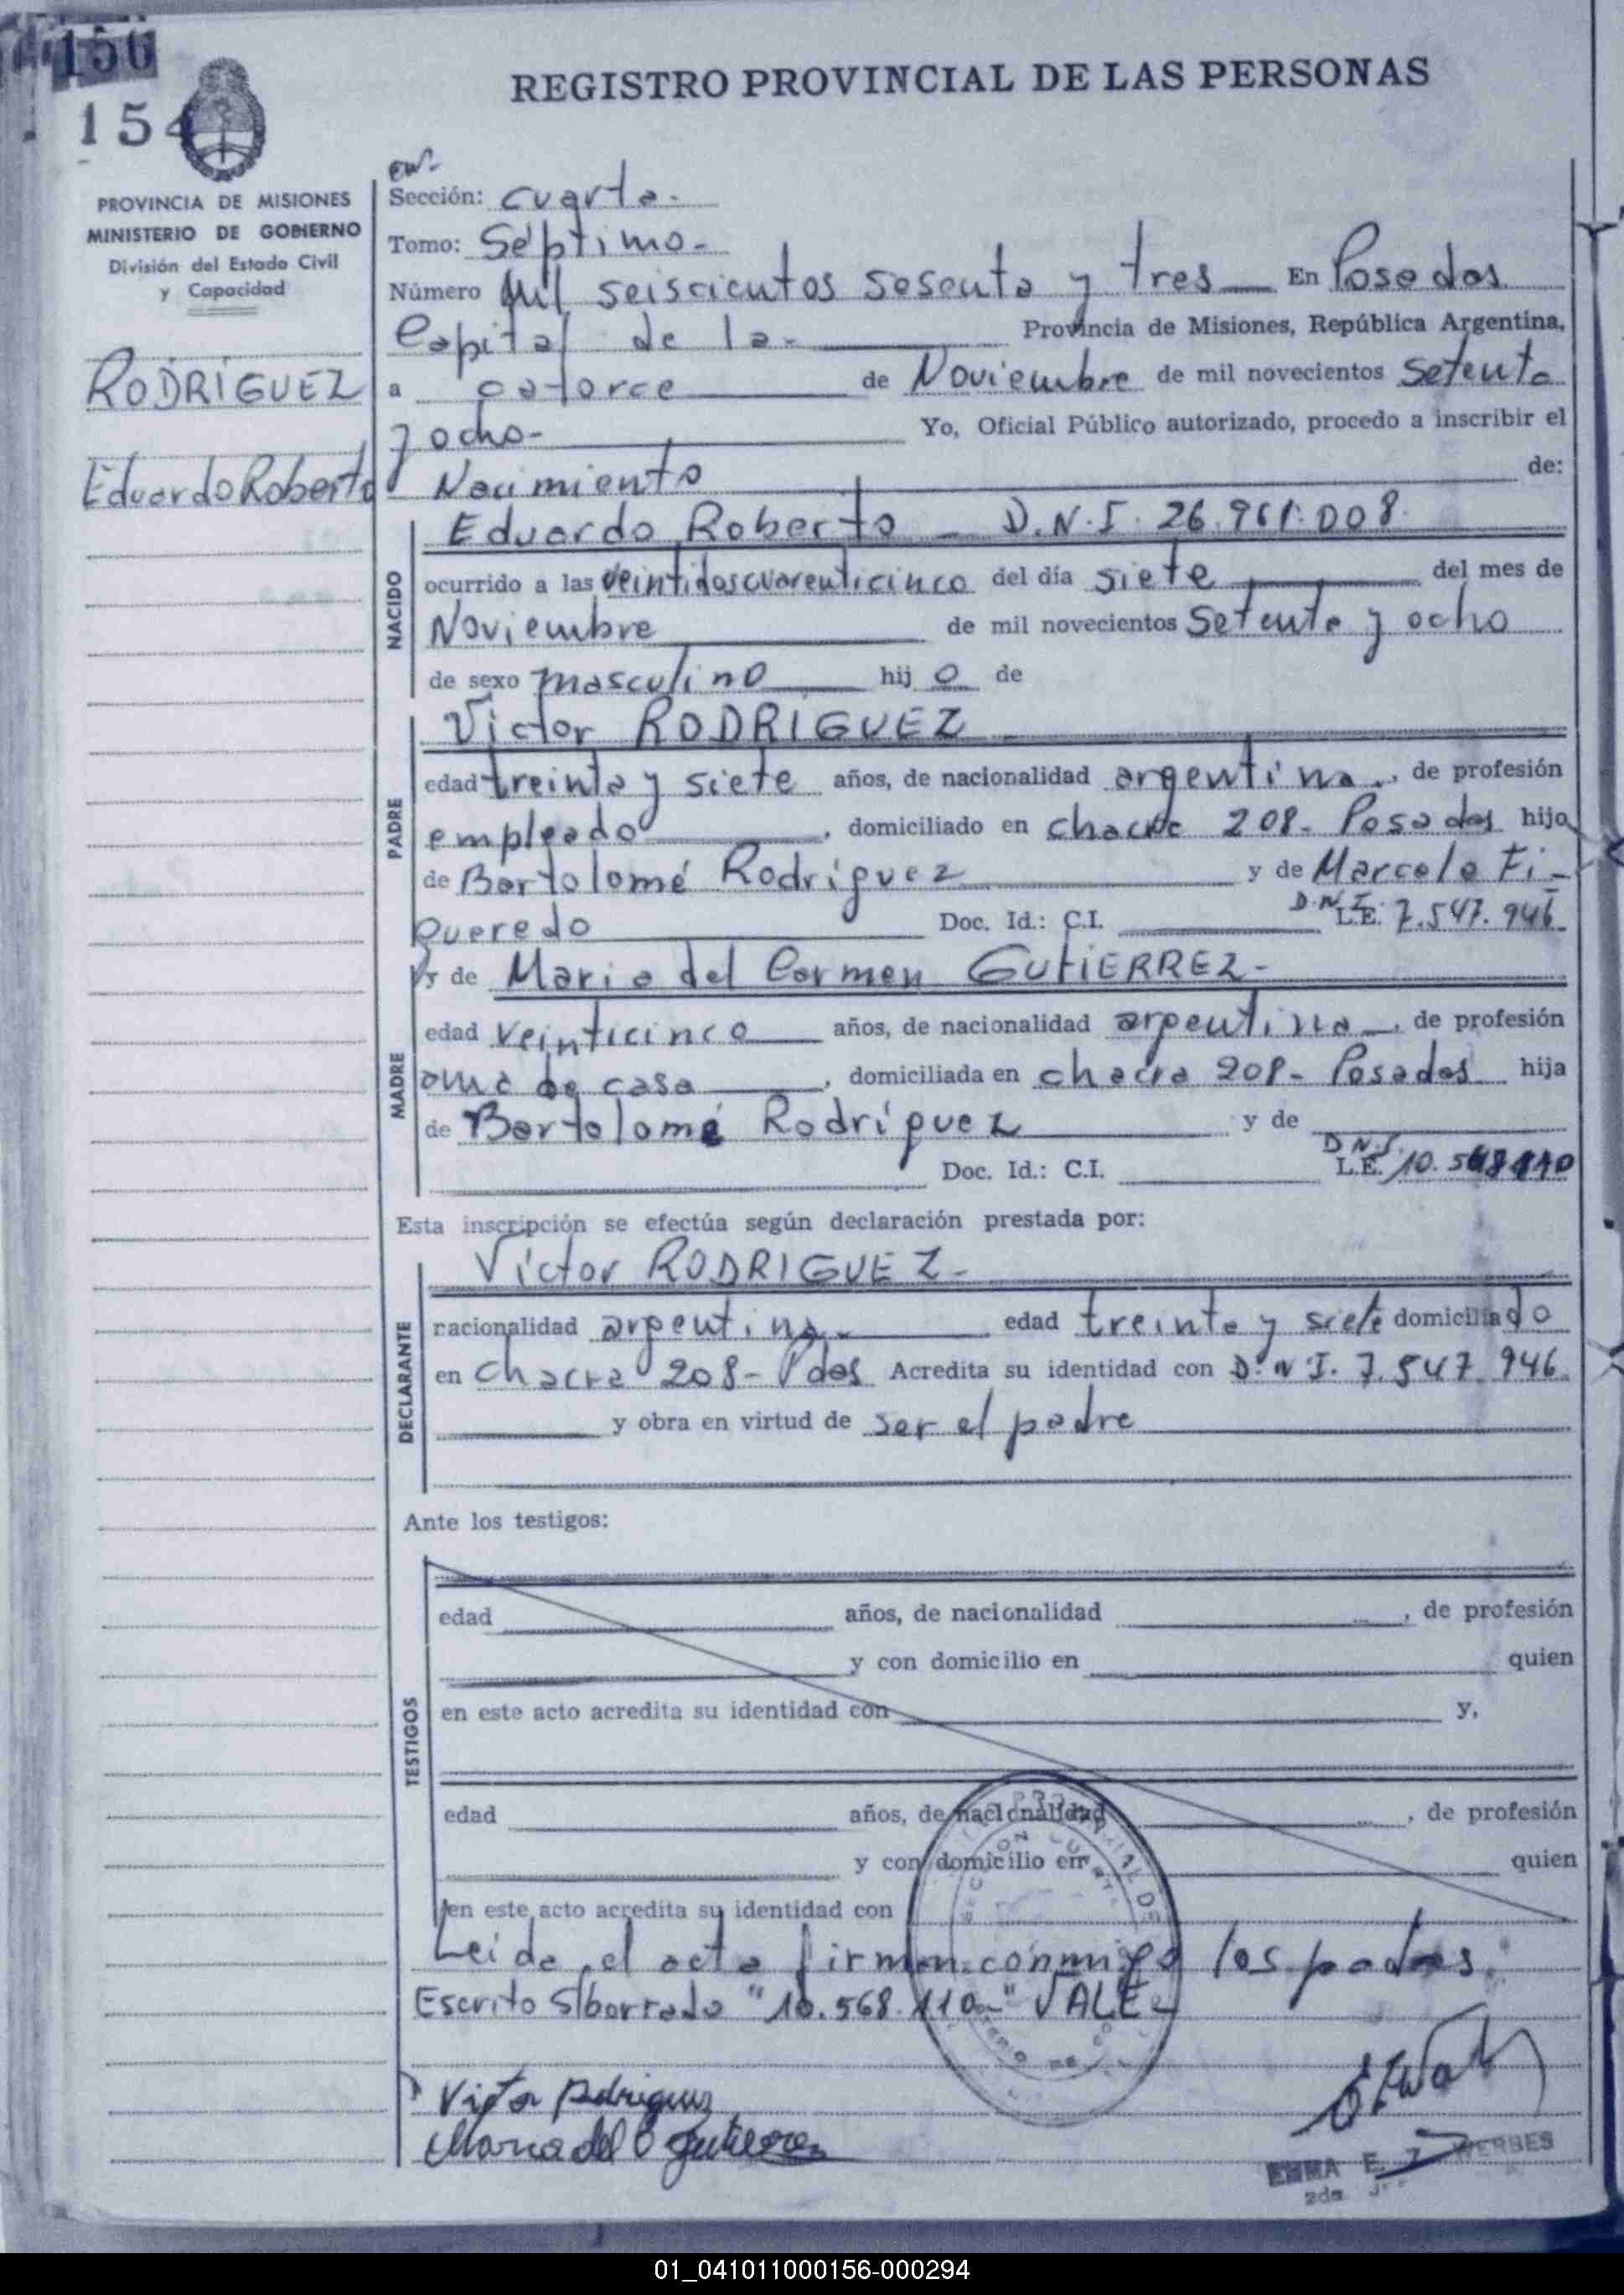 156
154
REGISTRO PROVINCIAL DE LAS PERSONAS
PROVINCIA DE MISIONES
MINISTERIO DE GOBIERNO
División del Estado Civil
y Capacidad
RODRIGUEZ
Eduardo Roberto
Sección: cuarta.
Tomo: Séptimo-
Número Mil seiscientos sesenta y tres En Posadas
Capital de la- Provincia de Misiones, República Argentina,
a catorce de Noviembre de mil novecientos setenta
y ocho- Yo, Oficial Público autorizado, procedo a inscribir el
Nacimiento de:
NACIDO
Eduardo Roberto - D.N.I. 26.961.008
ocurrido a las veintidoscuarenticinco del día siete del mes de
Noviembre de mil novecientos setenta y ocho
de sexo masculino hijo de
PADRE
Victor RODRIGUEZ
edad treinta y siete años, de nacionalidad argentina, de profesión
empleado, domiciliado en chacra 208- Posadas hijo
de Bartolomé Rodriguez y de Marcela Fi-
gueredo Doc. Id.: C.I. D.N.I. L.E. 7.547.946
MADRE
y de Maria del Carmen GUTIERREZ-
edad veinticinco años, de nacionalidad argentina, de profesión
ama de casa, domiciliada en chacra 208- Posadas hija
de Bartolomé Rodriguez y de
Doc. Id.: C.I. D.N.I. L.E. 10.568.110
Esta inscripción se efectúa según declaración prestada por:
DECLARANTE
Victor RODRIGUEZ-
nacionalidad argentina- edad treinta y siete domiciliado
en chacra 208- Pdas Acredita su identidad con D.N.I. 7.547.946.
y obra en virtud de ser el padre
Ante los testigos:
TESTIGOS
edad años, de nacionalidad , de profesión
y con domicilio en quien
en este acto acredita su identidad con y,
edad años, de nacionalidad , de profesión
y con domicilio en quien
en este acto acredita su identidad con
Leida el acta firman conmigo los padres.
Escrito S/borrado "10.568.110-" VALE-
Victor Rodriguez
Maria del C Gutierrez
EMMA E.
2da.
01_041011000156-000294